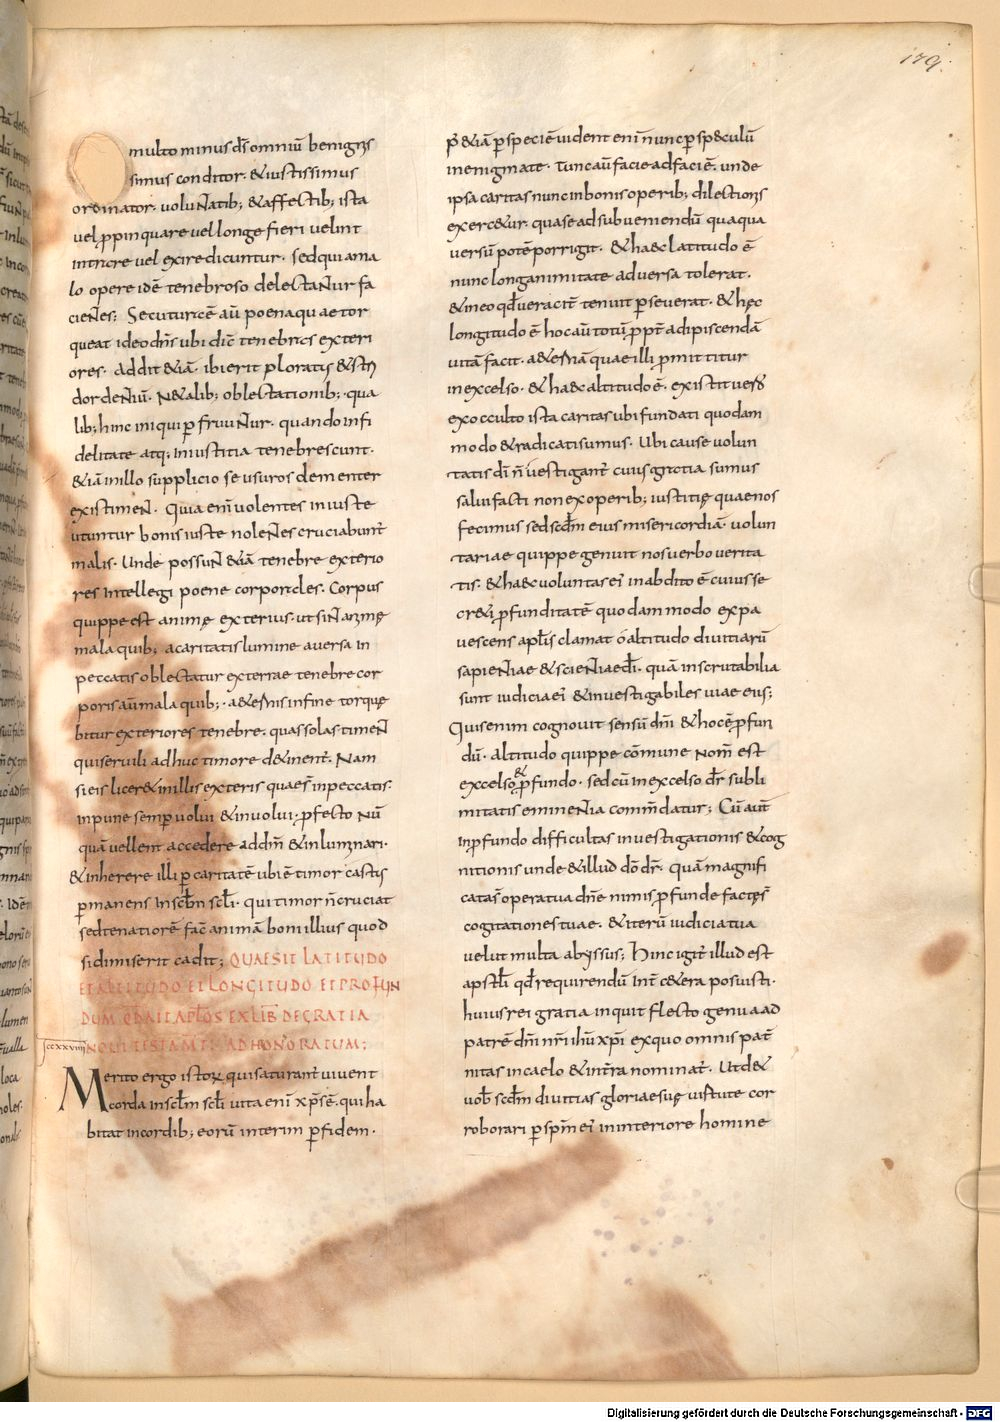 179.
multo minus d̄s omniū benignis
simus conditor. & iustissimus
ordinator. voluNatib; & affectib; ista
vel ꝓpinquare vel longe fieri velint
intrare vel exire dicuntur. sed qui ama
lo opere idē tenebroso delectaNtur fa
cieNtes; Secuturcē aū poena quae tor
queat ideo dn̄s ubi dic̄ tenebras exteri
ores. Addit &iā. ibi erit ploratus & str̄
dor deNtiū. Ne talib; oblectationib;. qua
lib; hinc iniqui ꝑfruuNtur. quando infi
delitate atq; iniustitia tenebrescunt.
&iā in illo supplicio se usuros dementer
existimeNt. Quia em̄ volentes iniuste
utuntur bonis iuste noleNtes cruciabunt̄
malis. Unde possuNt &iā tenebre exterio
res intellegi poene corporales. Corpus
quippe est animę exterius. ut siNt animę
mala quib; a caritatis lumine aversa in
peccatis oblectatur exterrae tenebre cor
poris aū mala quib;. a&ernis in fine torquę
bitur exteriores tenebre. quas solas timeNt
qui servili adhuc timore d&inent̄. Nam
si eis licer& in illis exteris quae s̄ in peccatis.
inpune semꝑ volui & involui. ꝓfecto nū
quā vellent accedere ad dm̄ & inluminari.
& inherere illi ꝑ caritatē ubi ē timor castus
ꝑmanens in sc̄lm sc̄li. qui timor n̄ cruciat
sed tenatiorē fac̄ animā boni illius quod
si dimiserit cadit; QUAE SIT LATITUDO
ET ALTITUDO ET LONGITUDO ET PROFUN
DUM QD̄ AIT AP̄LOS EX LIB̄ DE GRATIA
ccxxviiii NOUI TESTAM̄TI AD HONORATUM;
Merito ergo istorꝝ qui saturant̄ vivent
corda in sc̄lm sc̄li vita eni xp̄s ē. qui ha
bitat in cordib; eorū interim ꝑ fidem.
p̄ &iā ꝑ speciē vident enī nunc ꝑ speculū
in enigmate. Tunc aū facie ad faciē. unde
ipsa caritas nunc in bonis operib; dilectionis
exerc&ur. quase ad subveniendū quaqua
versū potē porrigit. & haec latitudo ē
nunc longanimitate adversa tolerat.
& in eo qd̄ veracit̄ tenuit ꝑseverat. & hęc
longitudo ē hoc aū totū ꝓpt̄ adipiscendā
vitā facit. a&ernā quae illi ꝓmittitur
in excelso. & haec altitudo ē. existit vero
ex occulto ista caritas ubi fundati quodam
modo & radicati sumus. Ubi cause volun
tatis dī n̄ vestigant̄ cuius gratia sumus
salui facti non ex operib; iustitię quae nos
fecimus sed sc̄dm eius misericordiā. volun
tariae quippe genuit nos verbo verita
tis. & haec voluntas ei in abdito ē cuius se
cr&i ꝓfunditatē quodam modo expa
vescens ap̄ls clamat o altitudo divitiarū
sapieNtiae & scieNtiae dī. quā inscrutabilia
sunt iudicia ei & investigabiles viae eius;
Quis enim cognovit sensū dn̄i & hoc ē ꝓfun
dū. altitudo quippe cōmune nom̄ est
excelso & ꝓfundo. sed cū in excelso dr̄ subli
mitatis emineNtia commdatur; Cū aut̄
in ꝓfundo difficultas investigationis & cog
nitionis unde & illud dō dr̄. quā magnifi
cata s̄ opera tua dn̄e nimis ꝓfunde factę s̄
cogitationes tuae. & iterū iudicia tua
velut multa abyssus; Hinc igit̄ illud est
apstl̄i qd̄ requirendū int̄ c&era posuisti.
huius rei gratia inquit flecto genua ad
patrē dn̄i nr̄i ihū xp̄i ex quo omnis pat̄
nitas in caelo & int̄ra nominat̄. Ut d&
vob̄ sc̄dm divitias gloriae suę virtute cor
roborari ꝑ sp̄m ei in interiore homine
Digitalisierung gefördert durch die Deutsche Forschungsgemeinschaft - DFG